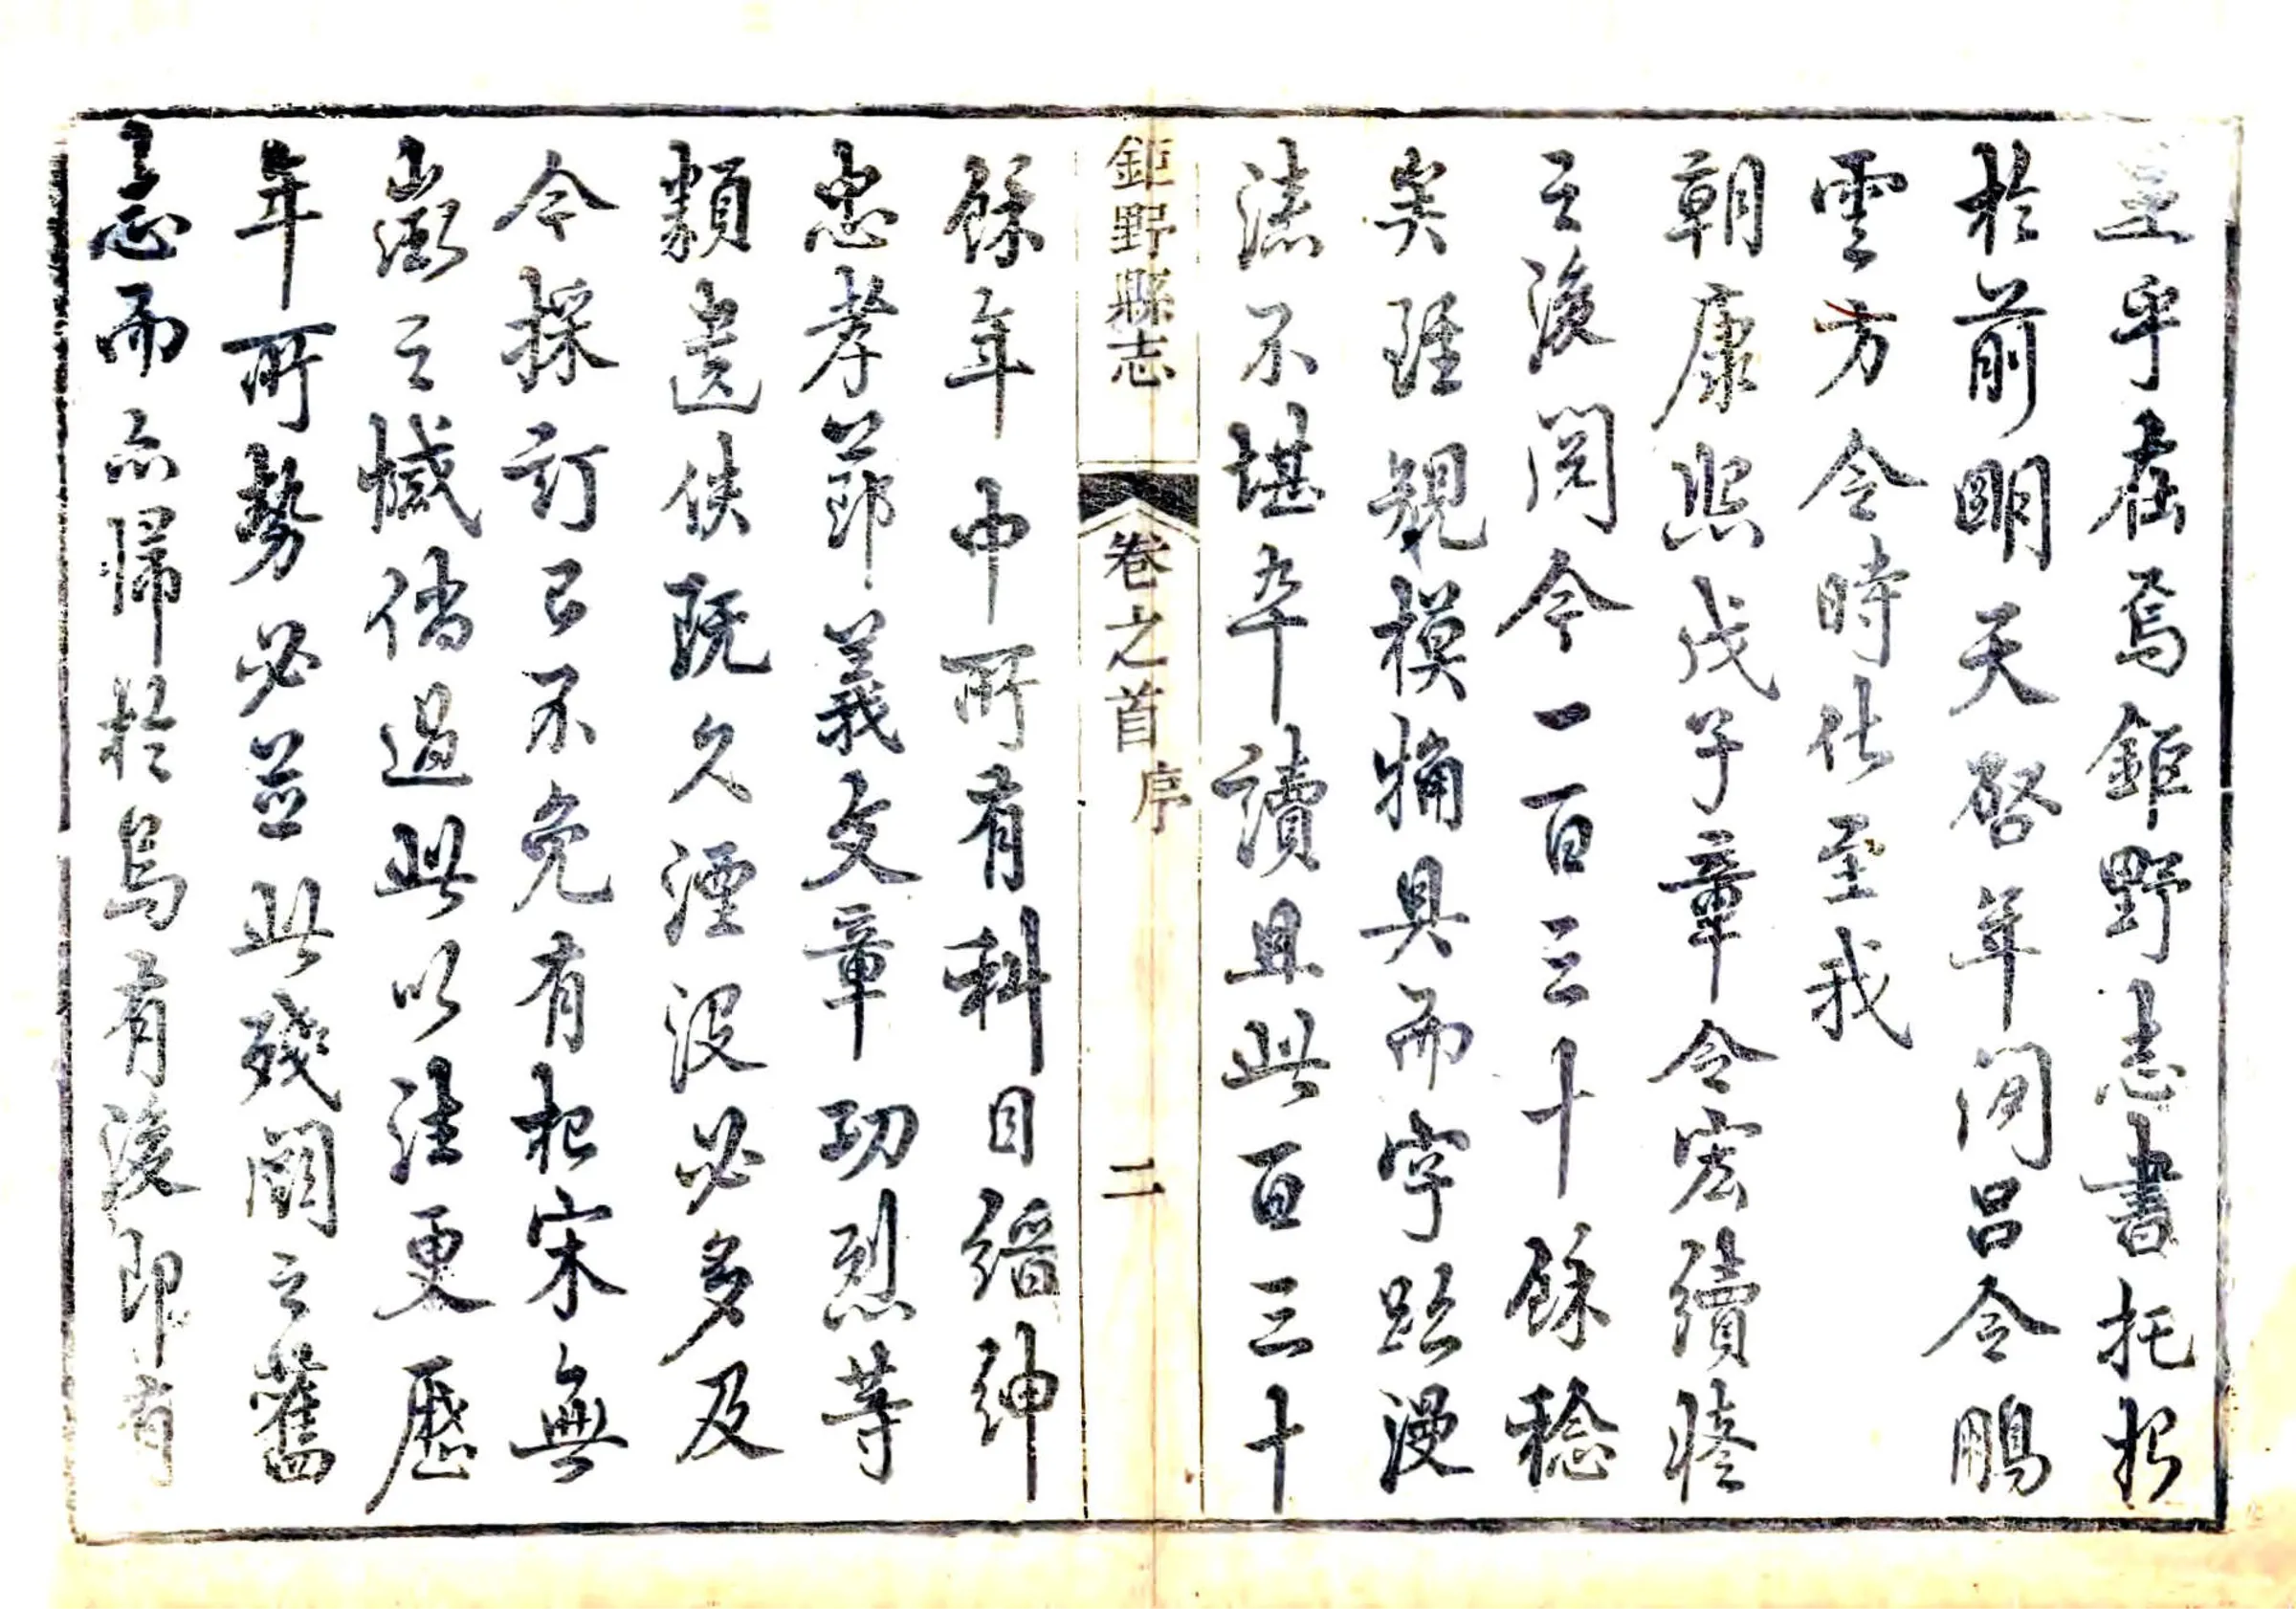 乎在焉鉅野志書托始
於前明天啓年間呂令鵬
雲方令時化至我
朝康熙戊子章令宏續修
之後閱今一百三十餘稔
矣雖規模觕具而字跡漫
漶不堪卒讀且此百三十
鉅野縣志 卷之首 序 二
餘年中所有科目縉紳
忠孝節義文章功烈等
類遺佚既久湮沒必多及
今採訂已不免有杞宋無
徵之憾倘過此以往更歷
年所勢必並此殘闕之舊
志而亦歸於烏有後即有